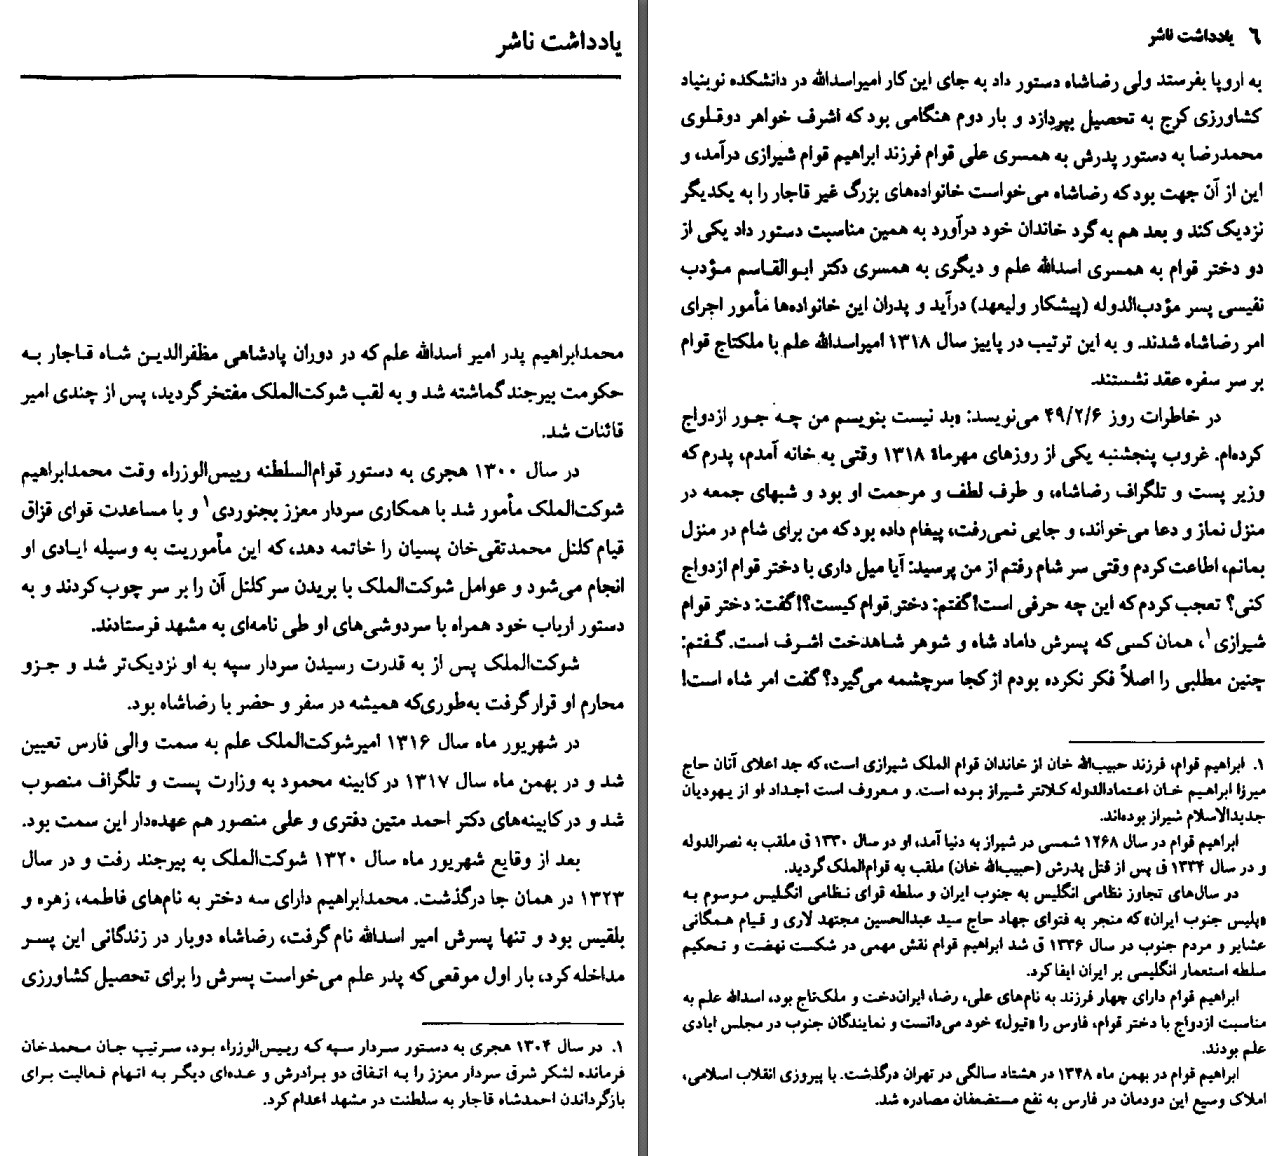 یادداشت ناشر
محمدابراهیم پدر امیر اسدالله علم که در دوران پادشاهی مظفرالدین شاه قاجار به
حکومت بیرجند گماشته شد و به لقب شوکت‌الملک مفتخر گردید، پس از چندی امیر
قائنات شد.
در سال ۱۳۰۰ هجری به دستور قوام‌السلطنه رییس‌الوزراء وقت محمدابراهیم
شوکت‌الملک مأمور شد با همکاری سردار معزز بجنوردی۱ و با مساعدت قوای قزاق
قیام کلنل محمدتقی‌خان پسیان را خاتمه دهد، که این مأموریت به وسیله ایادی او
انجام می‌شود و عوامل شوکت‌الملک با بریدن سر کلنل آن را بر سر چوب کردند و به
دستور ارباب خود همراه با سردوشی‌های او طی نامه‌ای به مشهد فرستادند.
شوکت‌الملک پس از به قدرت رسیدن سردار سپه به او نزدیک‌تر شد و جزو
محارم او قرار گرفت به‌طوری‌که همیشه در سفر و حضر با رضاشاه بود.
در شهریور ماه سال ۱۳۱۶ امیرشوکت‌الملک علم به سمت والی فارس تعیین
شد و در بهمن ماه سال ۱۳۱۷ در کابینه محمود به وزارت پست و تلگراف منصوب
شد و در کابینه‌های دکتر احمد متین دفتری و علی منصور هم عهده‌دار این سمت بود.
بعد از وقایع شهریور ماه سال ۱۳۲۰ شوکت‌الملک به بیرجند رفت و در سال
۱۳۲۳ در همان جا درگذشت. محمدابراهیم دارای سه دختر به نام‌های فاطمه، زهره و
بلقیس بود و تنها پسرش امیر اسدالله نام گرفت، رضاشاه دوبار در زندگانی این پسر
مداخله کرد، بار اول موقعی که پدر علم می‌خواست پسرش را برای تحصیل کشاورزی
۱. در سال ۱۳۰۴ هجری به دستور سردار سپه که رییس‌الوزراء بود، سرتیپ جان محمدخان
فرمانده لشکر شرق سردار معزز را به اتفاق دو برادرش و عده‌ای دیگر به اتهام فعالیت برای
بازگرداندن احمدشاه قاجار به سلطنت در مشهد اعدام کرد.
۶ یادداشت ناشر
به اروپا بفرستد ولی رضاشاه دستور داد به جای این کار امیراسدالله در دانشکده نوبنیاد
کشاورزی کرج به تحصیل بپردازد و بار دوم هنگامی بود که اشرف خواهر دوقلوی
محمدرضا به دستور پدرش به همسری علی قوام فرزند ابراهیم قوام شیرازی درآمد، و
این از آن جهت بود که رضاشاه می‌خواست خانواده‌های بزرگ غیر قاجار را به یکدیگر
نزدیک کند و بعد هم به گرد خاندان خود درآورد به همین مناسبت دستور داد یکی از
دو دختر قوام به همسری اسدالله علم و دیگری به همسری دکتر ابوالقاسم مؤدب
نفیسی پسر مؤدب‌الدوله (پیشکار ولیعهد) درآید و پدران این خانواده‌ها مأمور اجرای
امر رضاشاه شدند. و به این ترتیب در پاییز سال ۱۳۱۸ امیراسدالله علم با ملکتاج قوام
بر سر سفره عقد نشستند.
در خاطرات روز ۴۹/۲/۶ می‌نویسد: «بد نیست بنویسم من چه جور ازدواج
کرده‌ام. غروب پنجشنبه یکی از روزهای مهرماه ۱۳۱۸ وقتی به خانه آمدم، پدرم که
وزیر پست و تلگراف رضاشاه، و طرف لطف و مرحمت او بود و شبهای جمعه در
منزل نماز و دعا می‌خواند، و جایی نمی‌رفت، پیغام داده بود که من برای شام در منزل
بمانم، اطاعت کردم وقتی سر شام رفتم از من پرسید: آیا میل داری با دختر قوام ازدواج
کنی؟ تعجب کردم که این چه حرفی است! گفتم: دختر قوام کیست؟! گفت: دختر قوام
شیرازی۱، همان کسی که پسرش داماد شاه و شوهر شاهدخت اشرف است. گفتم:
چنین مطلبی را اصلاً فکر نکرده بودم از کجا سرچشمه می‌گیرد؟ گفت امر شاه است!
۱. ابراهیم قوام، فرزند حبیب‌الله خان از خاندان قوام الملک شیرازی است، که جد اعلای آنان حاج
میرزا ابراهیم خان اعتمادالدوله کلانتر شیراز بوده است. و معروف است اجداد او از یهودیان
جدیدالاسلام شیراز بوده‌اند.
ابراهیم قوام در سال ۱۲۶۸ شمسی در شیراز به دنیا آمد، او در سال ۱۳۳۰ ق ملقب به نصرالدوله
و در سال ۱۳۳۴ ق پس از قتل پدرش (حبیب‌الله خان) ملقب به قوام‌الملک گردید.
در سال‌های تجاوز نظامی انگلیس به جنوب ایران و سلطه قوای نظامی انگلیس موسوم به
«پلیس جنوب ایران» که منجر به فتوای جهاد حاج سید عبدالحسین مجتهد لاری و قیام همگانی
عشایر و مردم جنوب در سال ۱۳۳۶ ق شد ابراهیم قوام نقش مهمی در شکست نهضت و تحکیم
سلطه استعمار انگلیسی بر ایران ایفا کرد.
ابراهیم قوام دارای چهار فرزند به نام‌های علی، رضا، ایران‌دخت و ملک‌تاج بود، اسدالله علم به
مناسبت ازدواج با دختر قوام، فارس را «تیول» خود می‌دانست و نمایندگان جنوب در مجلس ایادی
علم بودند.
ابراهیم قوام در بهمن ماه ۱۳۴۸ در هشتاد سالگی در تهران درگذشت. با پیروزی انقلاب اسلامی،
املاک وسیع این دودمان در فارس به نفع مستضعفان مصادره شد.